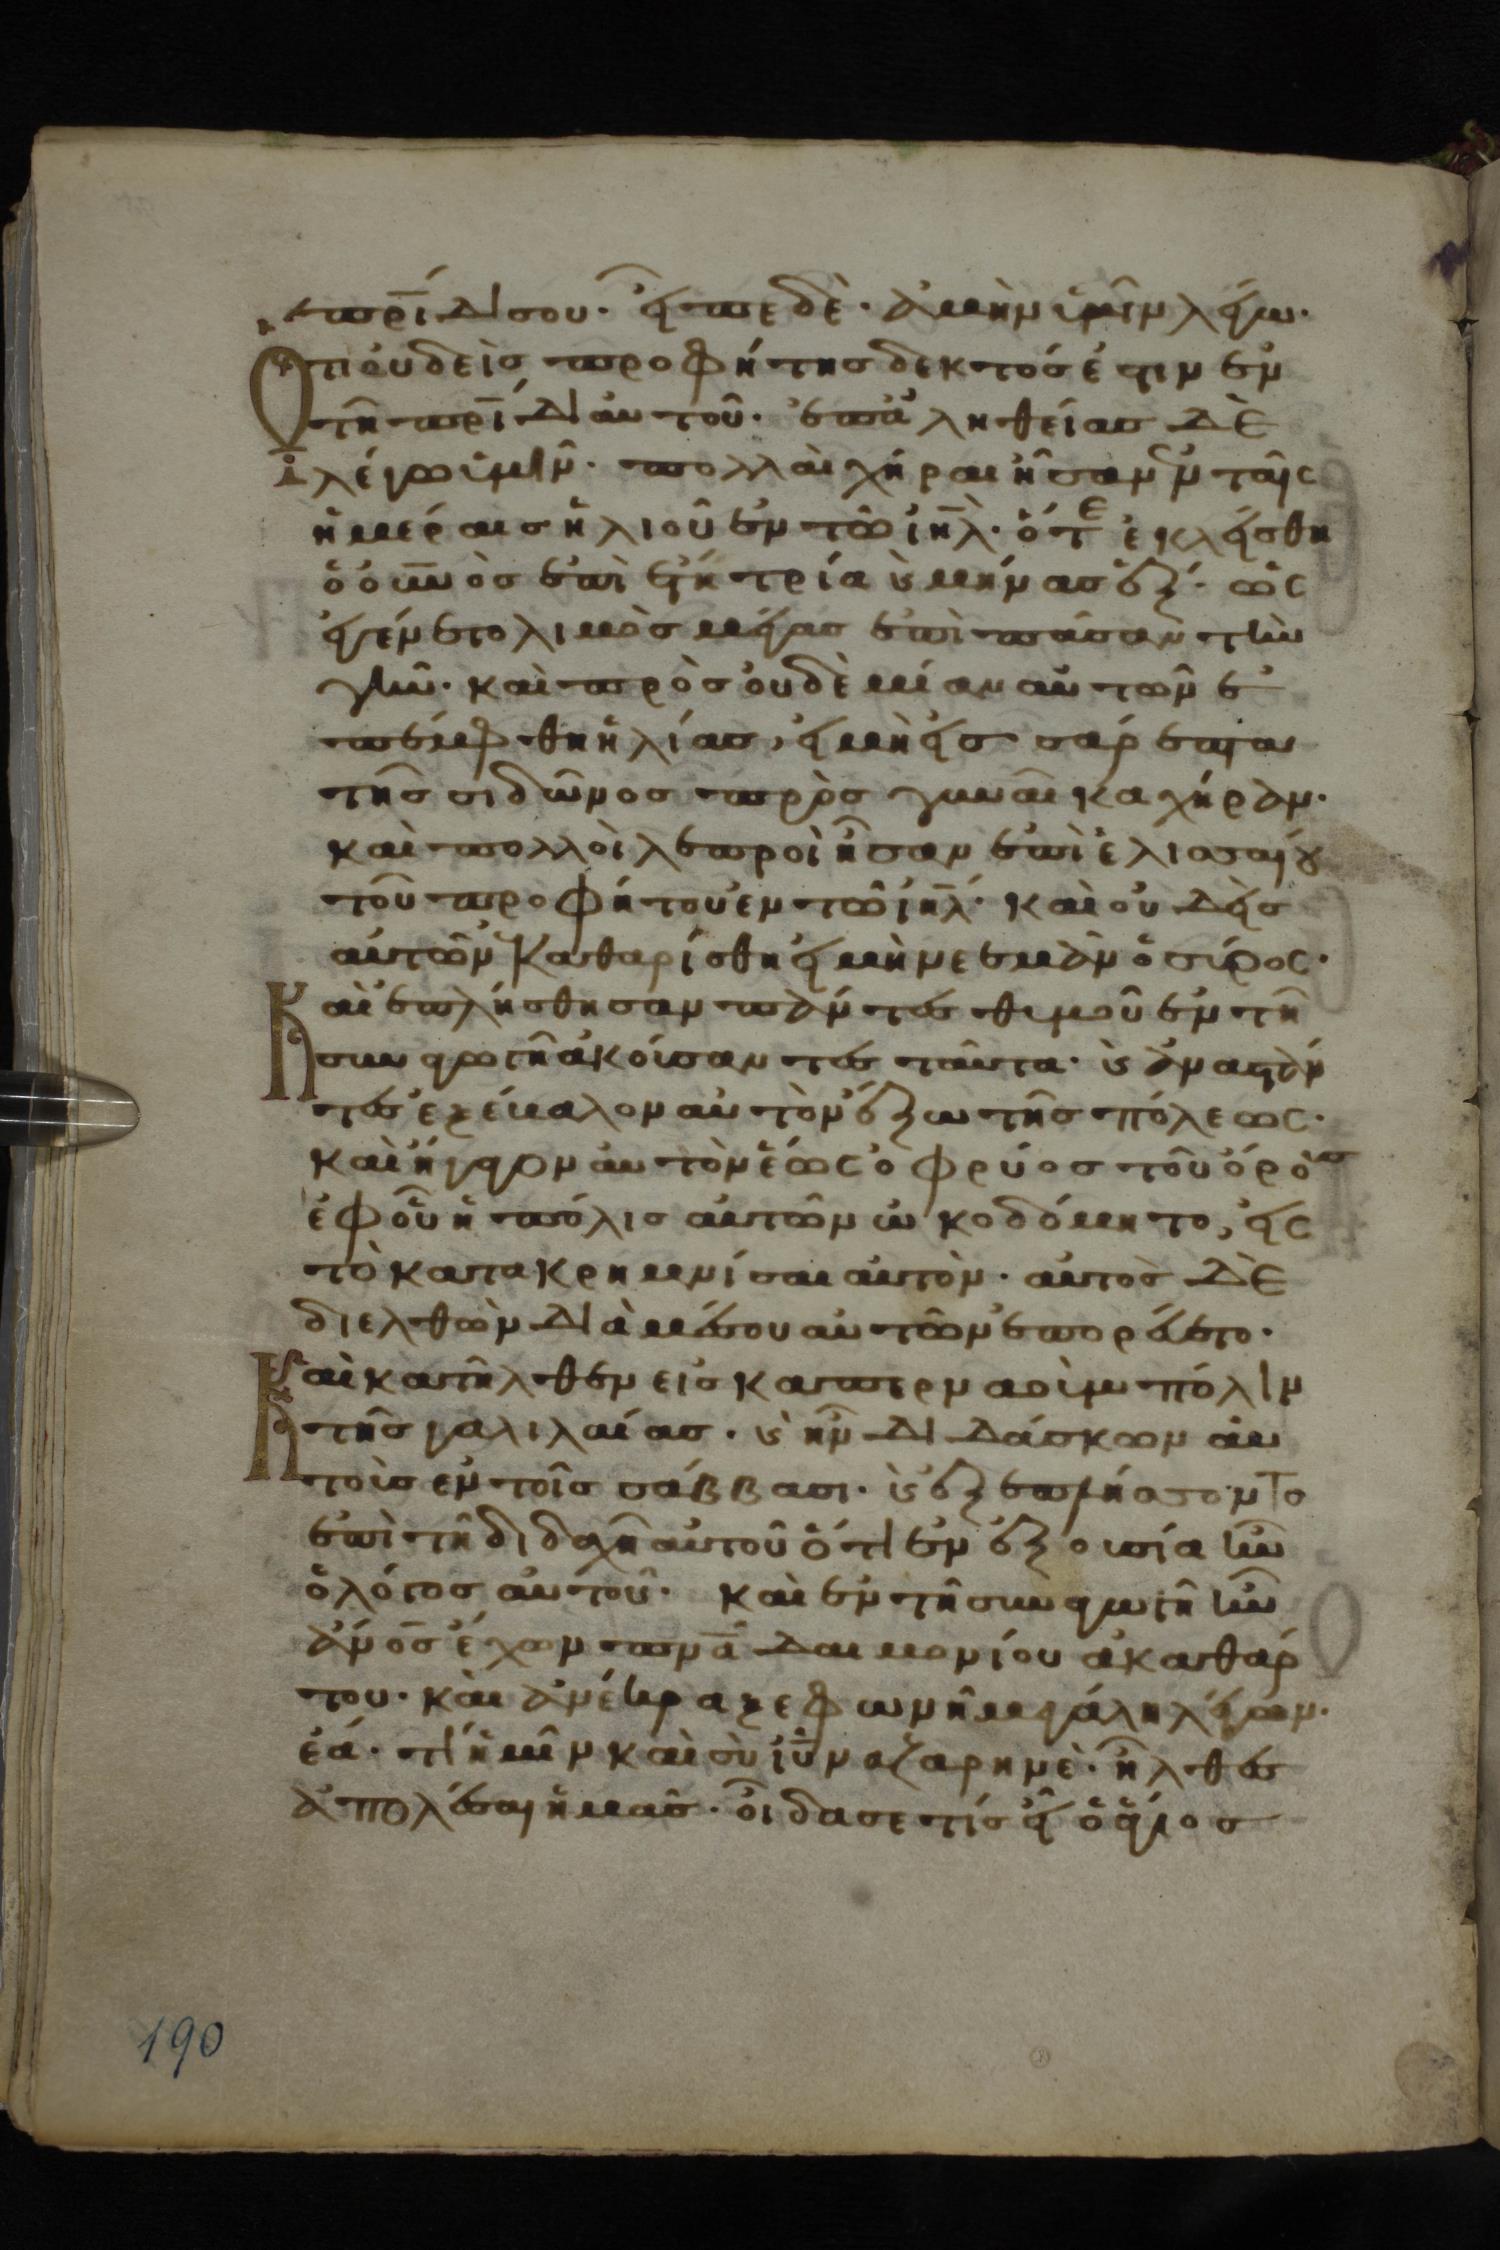 πρι̅́δι σου· εἶπε δὲ· ἀμὴν ὑμῖν λέγω·
Ὅτι οὐδεὶσ προφήτησ δεκτόσ ἐστιν ἐν
τῆ πρι̅́δι αὐτοῦ· ἐπἀληθείασ δὲ
λέγω ὑμῖν· πολλαὶ χήραι ἦσαν ἐν ταῖς
ἡμέραισ ἠλιοῦ ἐν τῶ ιη̅λ· ὅτε ἐκλείσθη
ὁ ου̅νὸσ ἐπὶ ἔτη τρία ϗ μήνασ ἕξ· ὡς
ἐγένετο λιμὸσ μέγασ ἐπὶ πᾶσαν τὴν
γῆν· καὶ πρὸσ οὐδὲ μίαν αὐτῶν ἐ
πέμφθη ἠλίασ, εἰ μὴ εἰσ σάρεπτα
τῆσ σιδῶνοσ πρὸσ γυναῖκα χήραν·
καὶ πολλοὶ λεπροὶ ἦσαν ἐπὶ ἐλισσαίου
τοῦ προφήτου ἐν τῶ ιη̅λ· καὶ οὐδεὶσ
αὐτῶν ἐκαθαρίσθη εἰ μὴ νεεμὰν ὁ σύρος·
Καὶ ἐπλήσθησαν πάντεσ θυμοῦ ἐν τῆ
συναγωγῆ ἀκούσαντεσ ταῦτα· ϗ ἀναστάν
τεσ ἐξέβαλον αὐτὸν ἔξω τῆσ πόλεως·
καὶ ἤγαγον αὐτὸν ἕως ὀφρύοσ τοῦ ὄρουσ
ἐφοὗ ἡ πόλισ αὐτῶν ὠκοδόμητο, εἰς
τὸ κατακρημνίσαι αὐτὸν· αὐτὸσ δὲ
διελθὼν διὰ μέσου αὐτῶν ἐπορεύετο·
Καὶ κατῆλθεν εἰσ καπερναοὺμ πόλιν
τῆσ γαλιλαίασ· ϗ ἦν διδάσκων αὐ
τοὺσ ἐν τοῖσ σάββασι· ϗ ἐξεπλήσσοντο
ἐπὶ τῆ διδαχῆ αὐτοῦ ὅτι ἐν ἐξουσία ἦν
ὁ λόγοσ αὐτοῦ· καὶ ἐν τῆ συναγωγῆ ἦν
ἀν̅οσ ἔχων πν̅α δαιμονίου ἀκαθάρ
του· καὶ ἀνέκραξε φωνῆ μεγάλη λέγων·
ἔα· τί ἡμῖν καὶ σὺ ιυ̅ ναζαρηνὲ· ἦλθεσ
ἀπολέσαι ἡμᾶσ· οἶδα σε τίσ εἶ ὁ ἅγιοσ
190